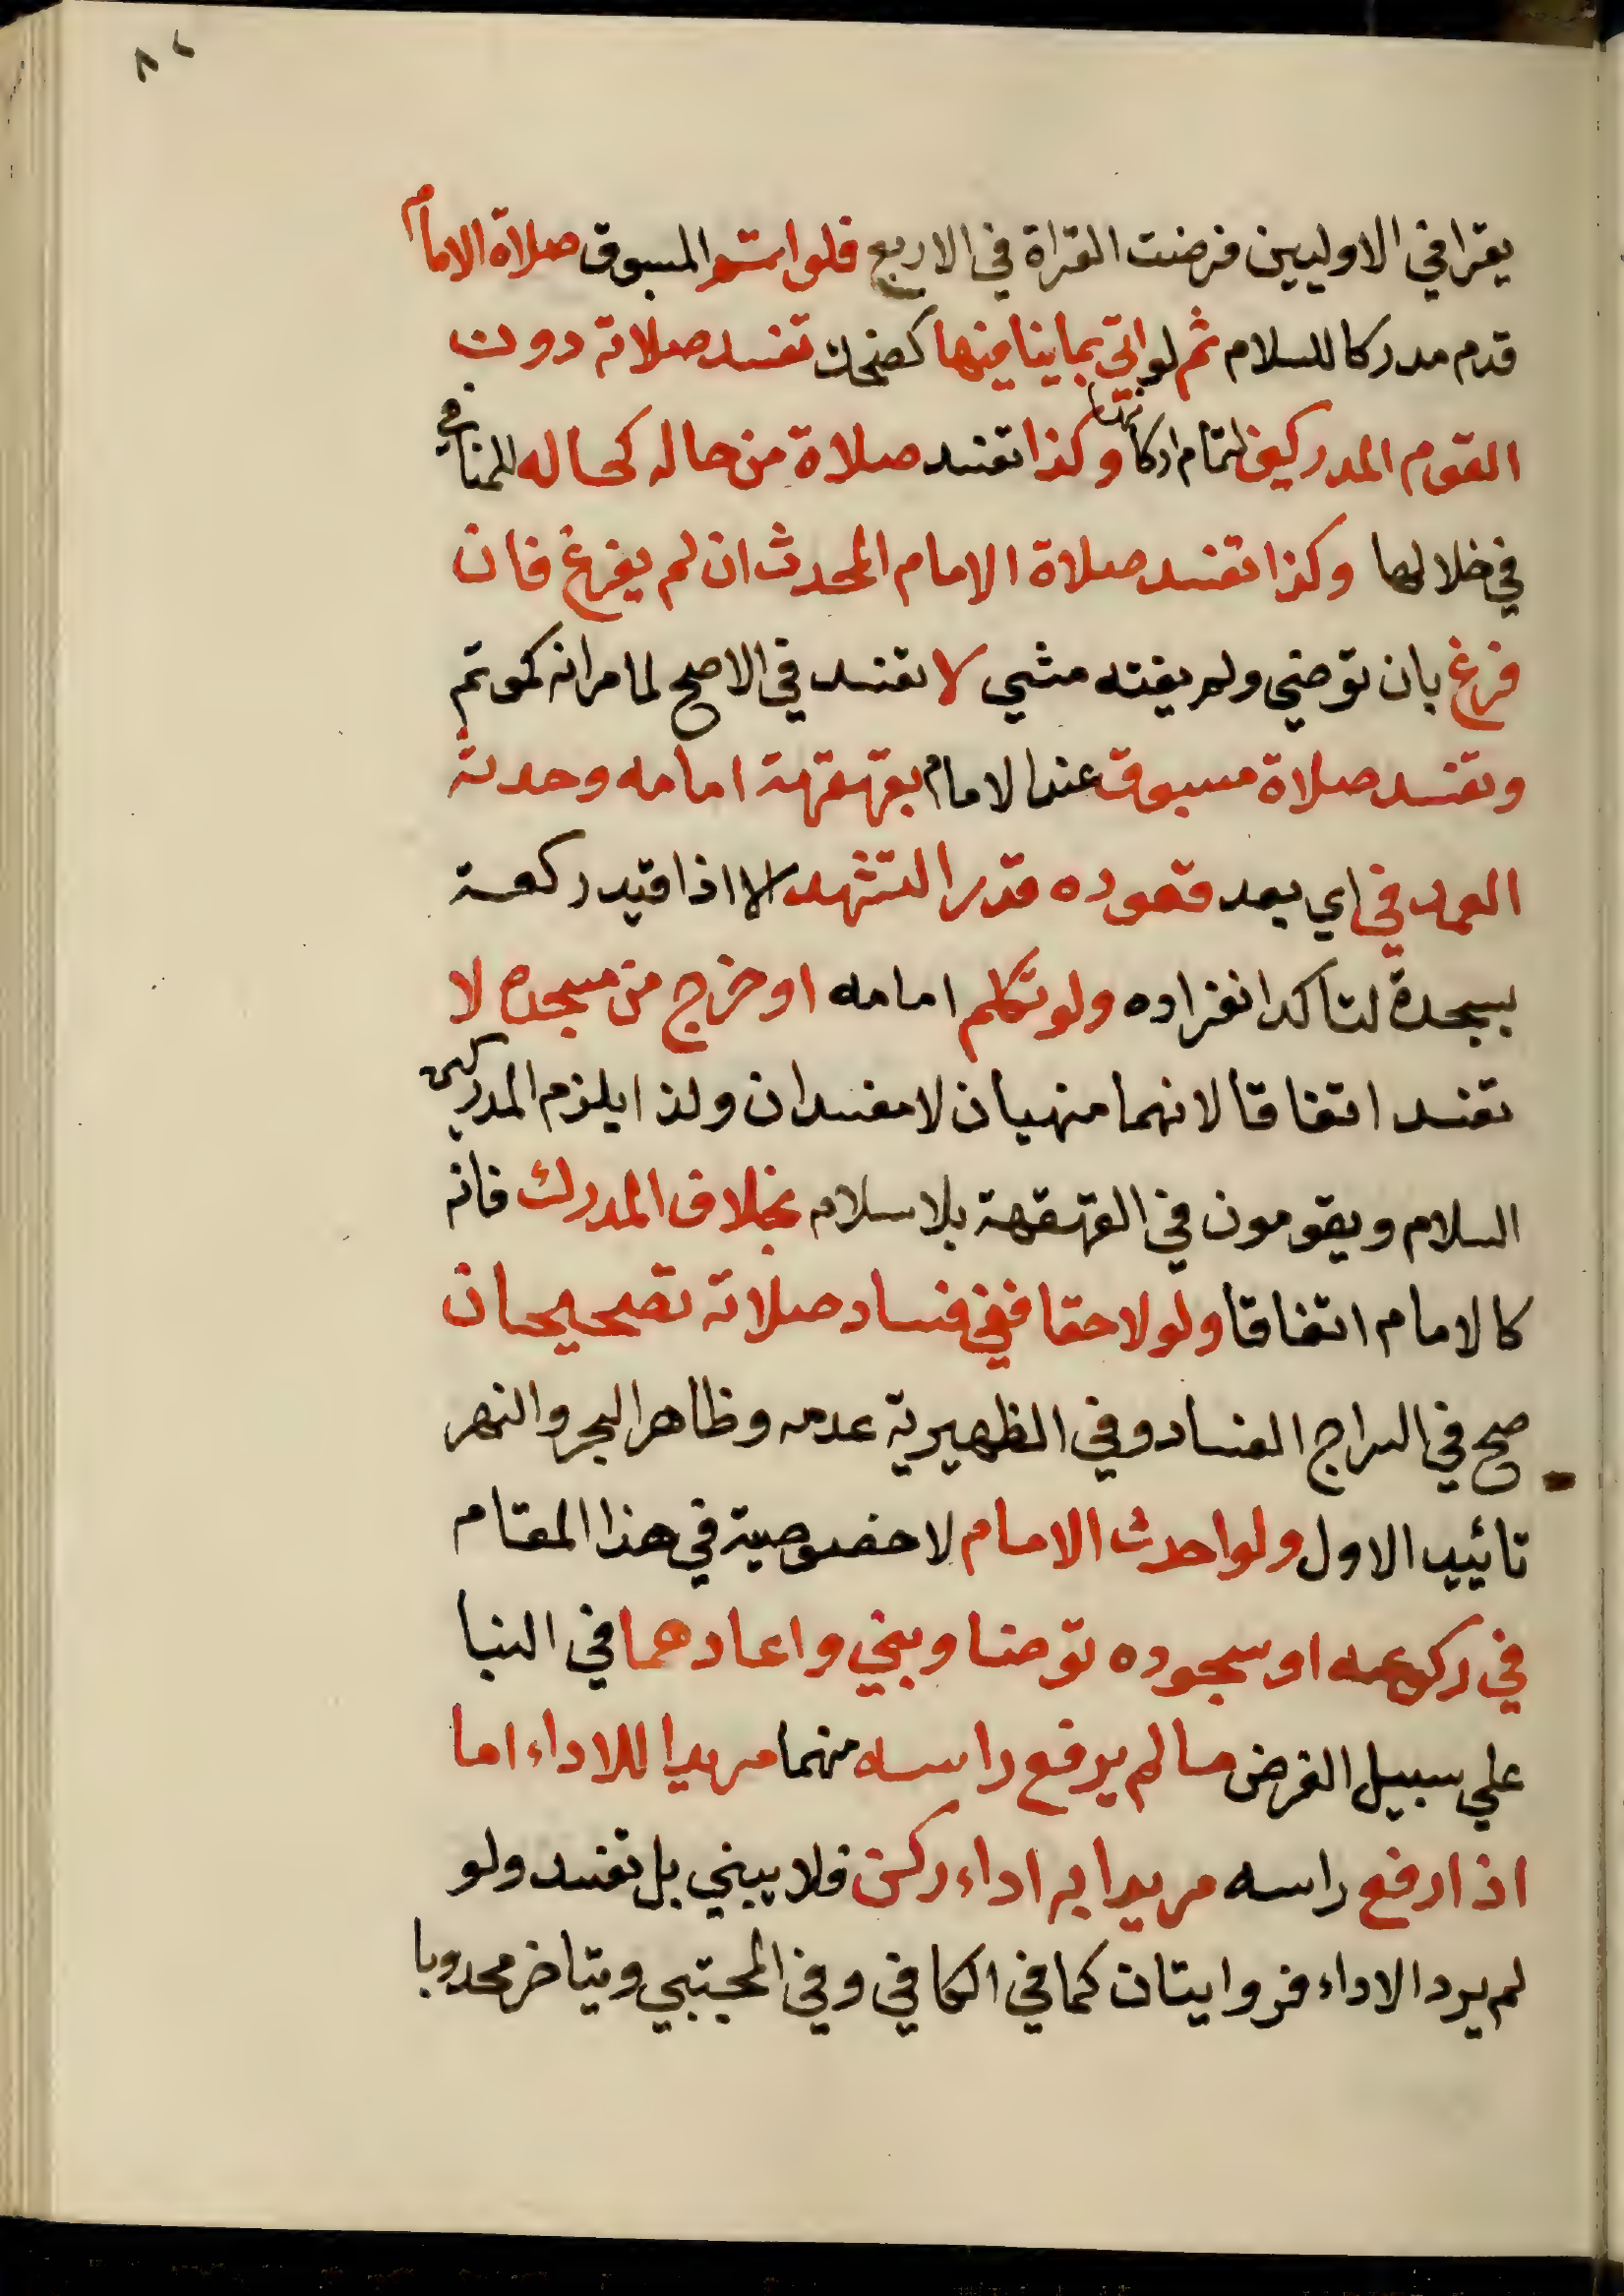 ٨٢
يقرا في الاوليين فرضت القراة في الاربع فلو اتم المسبوق صلاة الامام
قدم مدركا للسلام ثم لو اتى بما ينافيها كضحك تفسد صلاته دون
القوم المدركين لتمام اركانها وكذا تفسد صلاة من حاله كحاله للمنافي
في خلالها وكذا تفسد صلاة الامام المحدث ان لم يفرغ فان
فرغ بان توضي ولم يفته شي لا تفسد في الاصح لما مر انه كموتم
وتفسد صلاة مسبوق عند الامام بقهقهة امامه وحدثه
العمد في اي بعد قعوده قدر التشهد الا اذا قيد ركعة
بسجدة لتاكد انفراده ولو تكلم امامه او خرج من مسجده لا
تفسد اتفاقا لانهما منهيان لا مفسدان ولذا يلزم المدركين
السلام ويقومون في القهقهة بلا سلام بخلاف المدرك فانه
كالامام اتفاقا ولو لاحقا ففي فساد صلاته تصحيحان
صحح في السراج الفساد وفي الظهيرية عدمه وظاهر البحر والنهر
تائيد الاول ولو احدث الامام لا خصوصية في هذا المقام
في ركوعه او سجوده توضا وبني واعادهما في البنا
علي سبيل الفرض ما لم يرفع راسه منهما مريدا للاداء اما
اذا رفع راسه مريدا به اداء ركن فلا يبني بل تفسد ولو
لم يرد الاداء فروايتان كما في الكافي وفي المجتبي ويتاخر محدوبا